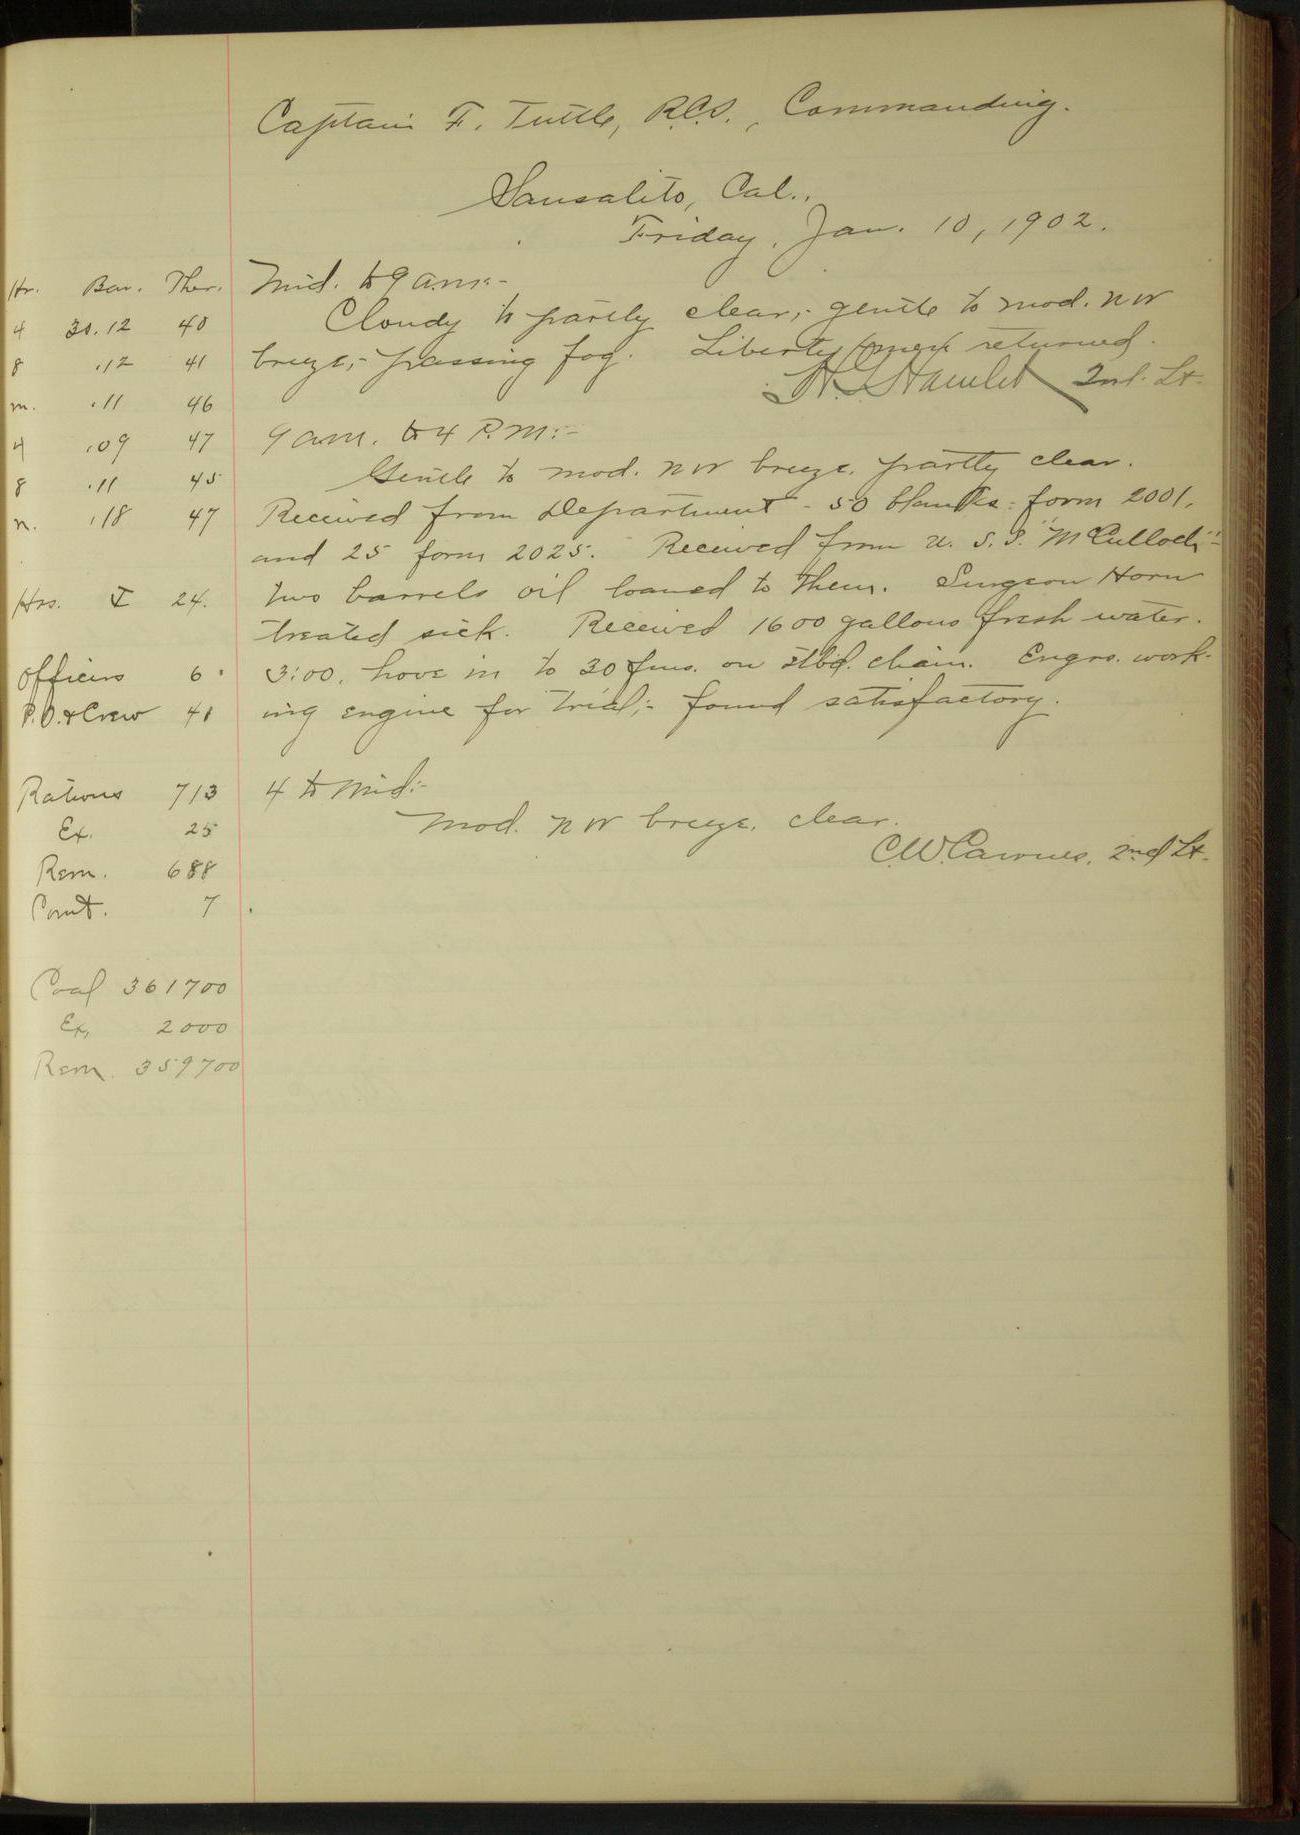 Captain F. Tuttle, R.C.S., Commanding.
Sausalito, Cal.,
Friday, Jan. 10, 1902.
Hr. Bar. Ther.
4 30.12 40
8 .12 41
m. .11 46
4 .09 47
8 .11 45
n. .18 47
Hrs. 24.
Officers 6
P.O. & Crew 41
Rations 713
Ex. 25
Rem. 688
Comt. 7
Coal 361700
Ex. 2000
Rem. 359700
Mid. to 9 a.m:-
Cloudy to partly clear;- gentle to mod. NW
breeze;- passing fog. Liberty men returned.
H. G. Hamlet 2nd. Lt.
9 a.m. to 4 P.M:-
Gentle to mod. NW breeze, partly clear.
Received from Department - 50 blanks: form 2001,
and 25 form 2025. Received from U. S. S. "McCulloch"
two barrels oil loaned to them. Surgeon Horn
treated sick. Received 1600 gallons fresh water.
3:00, hove in to 30 fms. on stbd. chain. Engrs. work-
ing engine for trial;- found satisfactory.
4 to Mid:-
Mod. NW breeze, clear.
C.W. Cairnes, 2nd Lt.